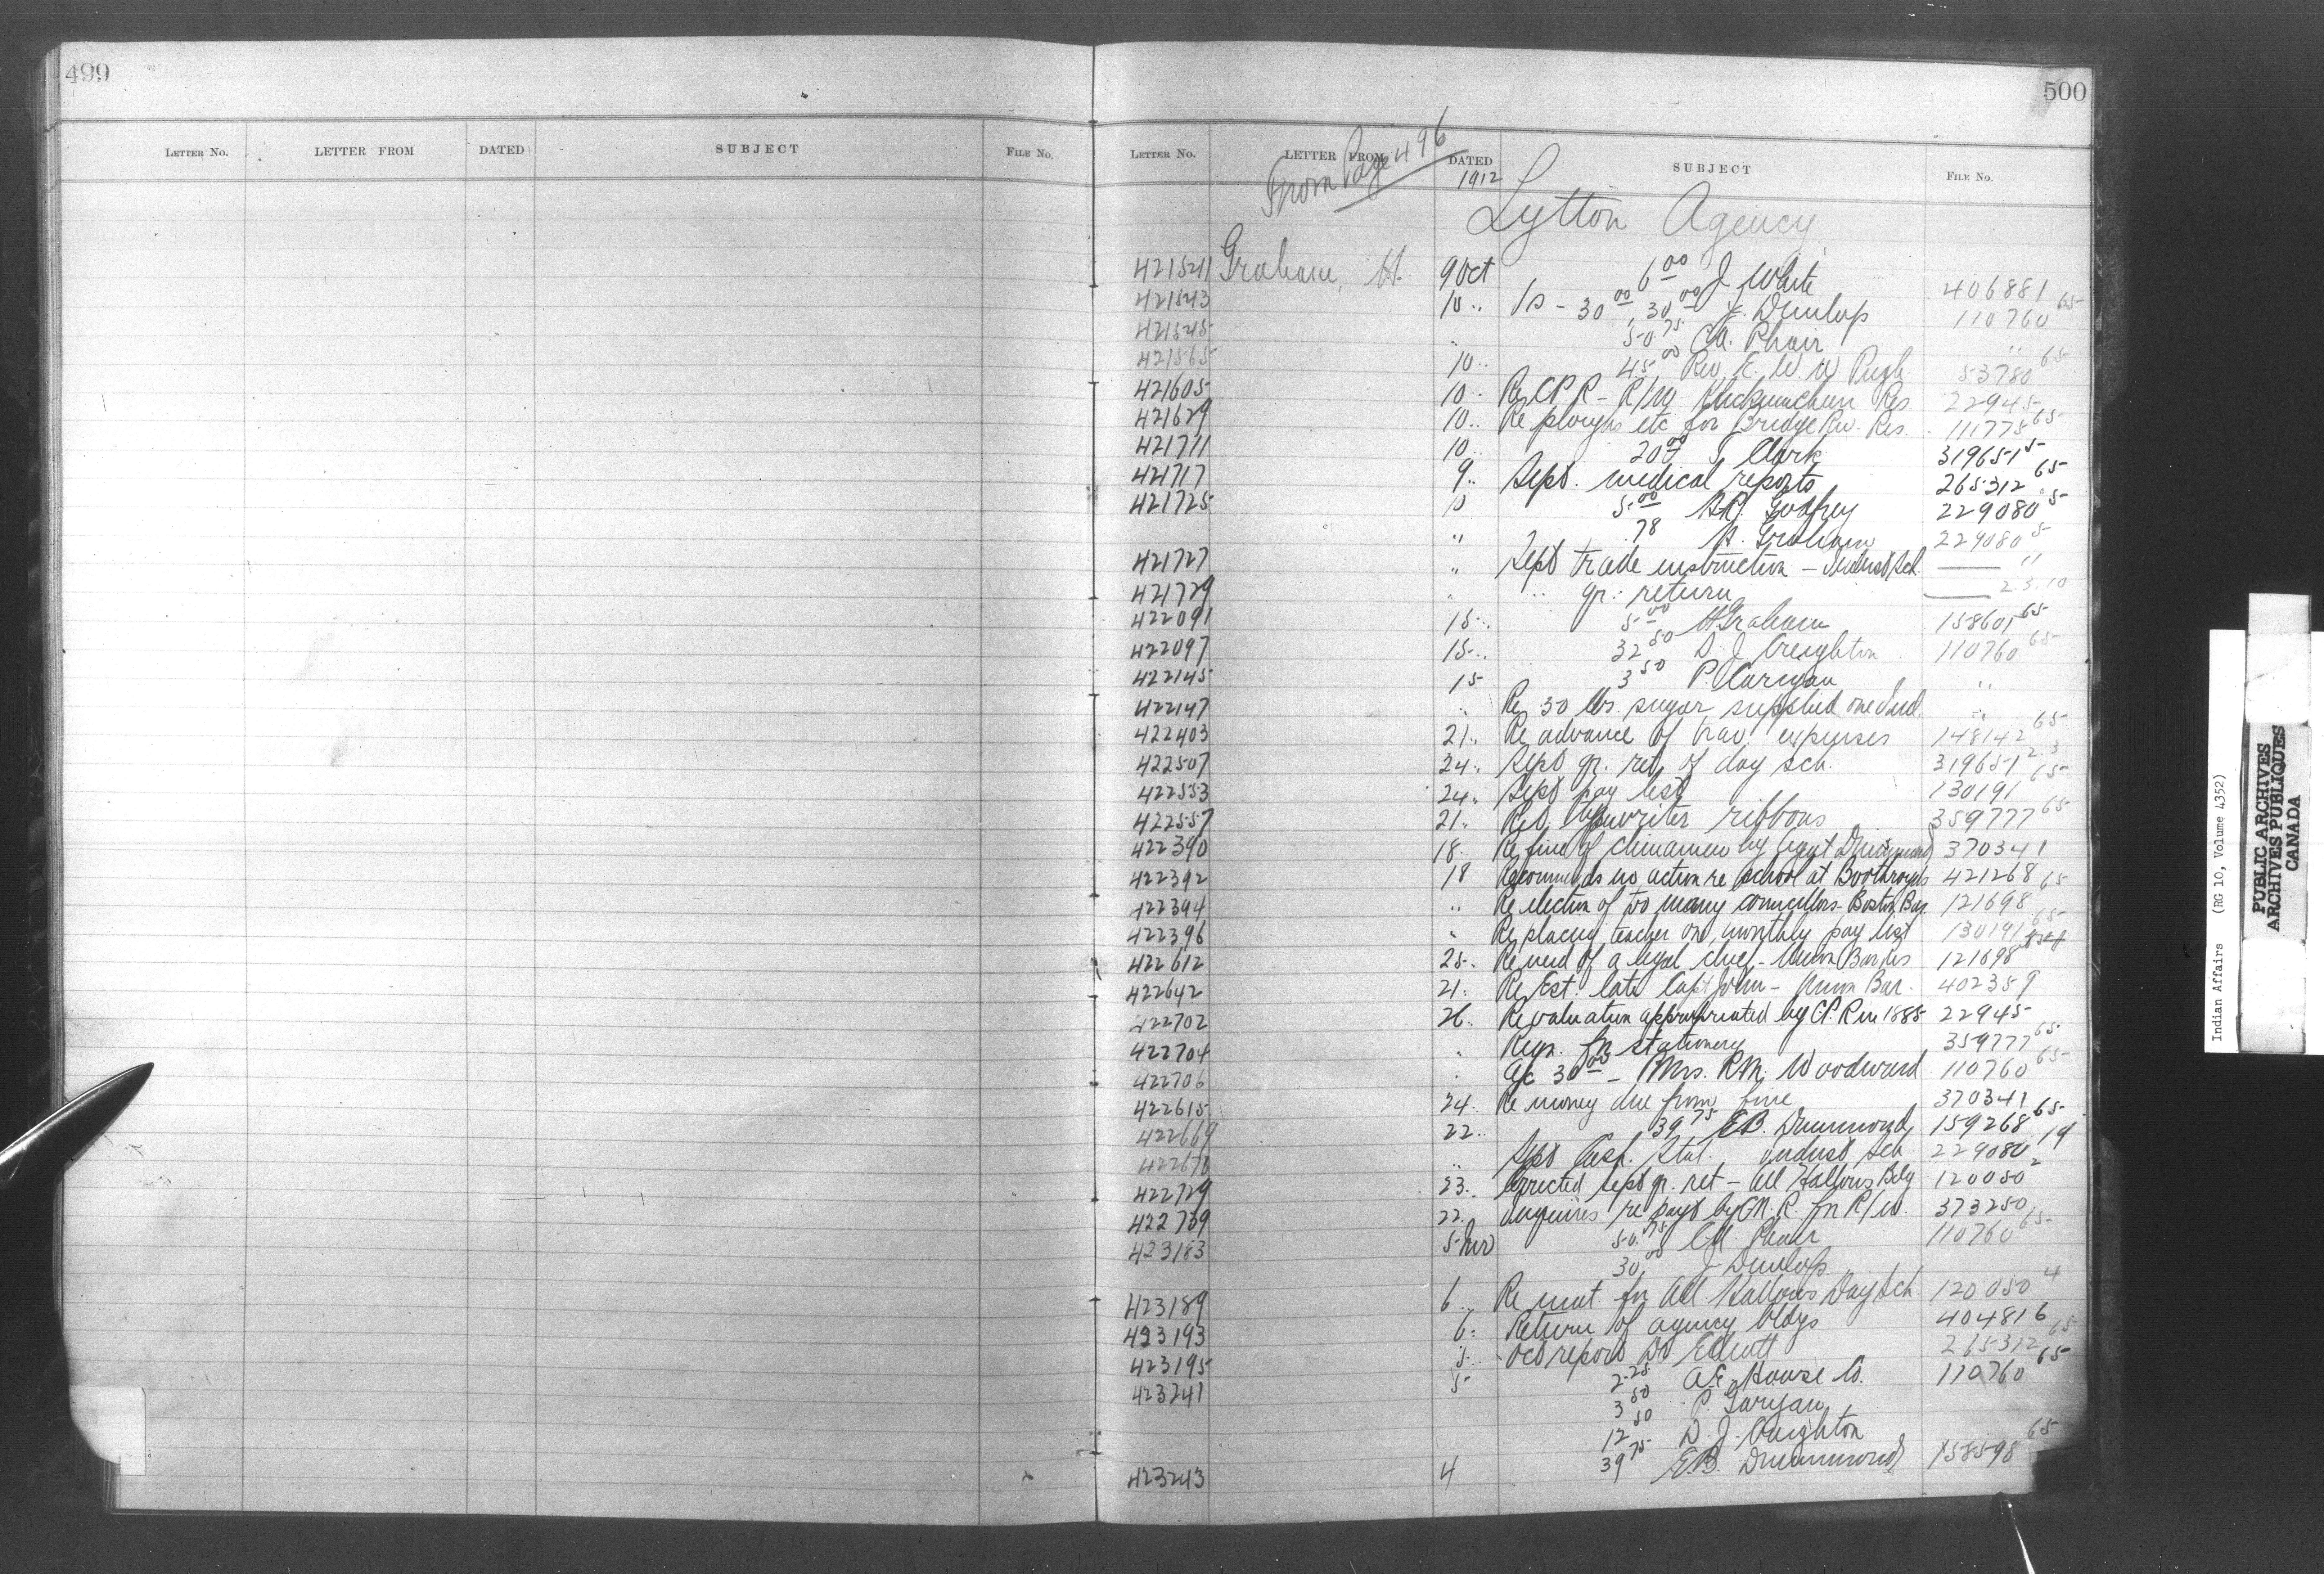 499
500
LETTER NO. LETTER FROM DATED SUBJECT FILE NO.
LETTER NO. LETTER FROM DATED SUBJECT FILE NO.
From Page 496
1912
Lytton Agency
421541 Graham, H. 9 Oct 6 00 J White 406881
421543 10 " 10 - 30 00, 30 00 J. Dunlop 110760 65
421545 " 50 75 CA. Phair "
421565 10 " 45 00 Rev. E. W. W Pugh 53780 65
421605 10 " Re CPR - R/W Res 22945
421629 10 " Re ploughs etc for Bridge Riv. Res. 111775 65
421711 10 " 20 00 Clark 319651 5
421717 9 " Sept. medical reports 265312 65
421725 10 5 00 Godfrey 229080 5
" .78 H. Graham 229080 5
421727 " Sept trade instruction - Indust Sch. "
421729 " " qr. return 2.3.10
422091 15 " 5 00 H Graham 158601 65
422097 15 " 32 50 D. J Creighton 110760 65
422145 15 3 50 P. "
422147 " Re 30 lbs. sugar supplied one Ind. "
422403 21 " Re advance of trav. expenses 148142 65
422507 24 " Sept qr. ret. of day sch. 319651 2.3
422553 24 " Sept pay list 130191 65
422557 21 " typewriter ribbons 359777 65
422390 18 " Re fine of chinamen by Agent Drummond 370341
422392 18 Recommends no action re school at Boothroyds 421268
422394 " Re election of too many councillors - Boston Bar 121698 65
422396 " Re placing teacher on monthly pay list 130191 65
422612 25 " Re need of a legal chief - Union Bar Res 121698
422642 21 " Re Est. late Capt John - Union Bar. 402359
422702 26 " Re valuation appropriated by C.P.R in 1885 22945
422704 " Reqn. for stationery 359777 65
422706 " a/c 30 00 - Mrs. RM. Woodward 110760 65
422615 24 " Re money due from fine 370341
422669 22 " 39 75 EB. Drummond 159268 65
422670 " Sept Cash. Stat. Indust Sch 229080 19
422729 23 " Corrected Sept qr. ret - All Hallows Bdg 120050 2
422739 22 " Inquires re payt by CN.R. for R/W. 373250
423183 5 Nov 50 75 CA. Phair 110760 65
30 00 J Dunlop
423189 6 " Re mat. for All Hallows Day Sch 120050 4
423193 6 " Return of agency bldgs 404816
423195 5 " Oct report Dr 265312 65
423241 5 2 25 A.E. House Co. 110760 65
3 50 P.
12 50 D. J. Creighton
423243 4 39 75 EB. Drummond 158598 65
Indian Affairs (RG 10, Volume 4352)
PUBLIC ARCHIVES
ARCHIVES PUBLIQUES
CANADA